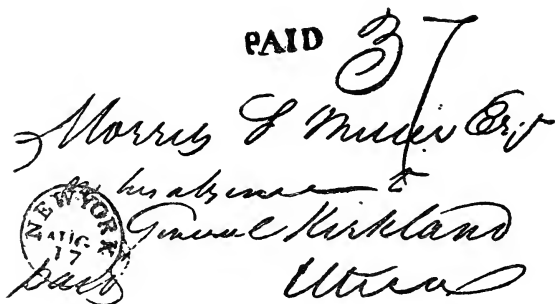 PAID 37
Morris S Miller Esqr
in his absence to
General Kirkland
NEW-YORK
AUG
17
paid
Utica